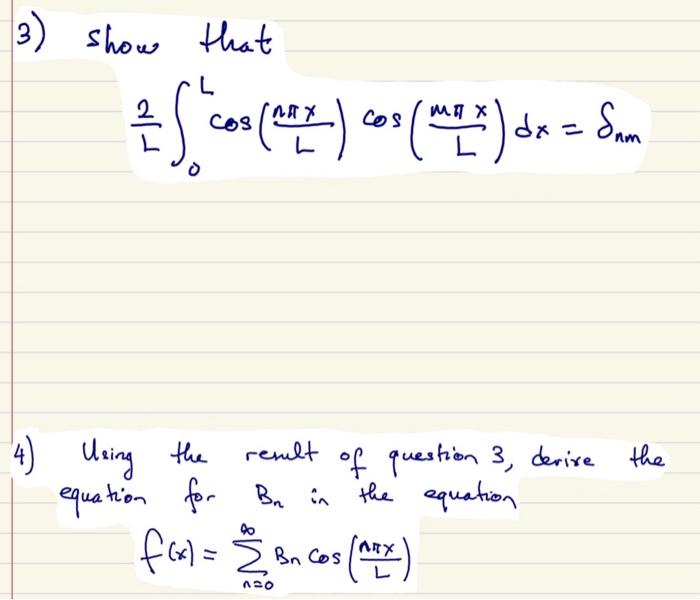 3) show that
2/L ∫₀ᴸ cos(nπx/L) cos(mπx/L) dx = δnm
4) Using the result of question 3, derive the
equation for Bn in the equation
f(x) = ∑_{n=0}^{∞} Bn cos(nπx/L)